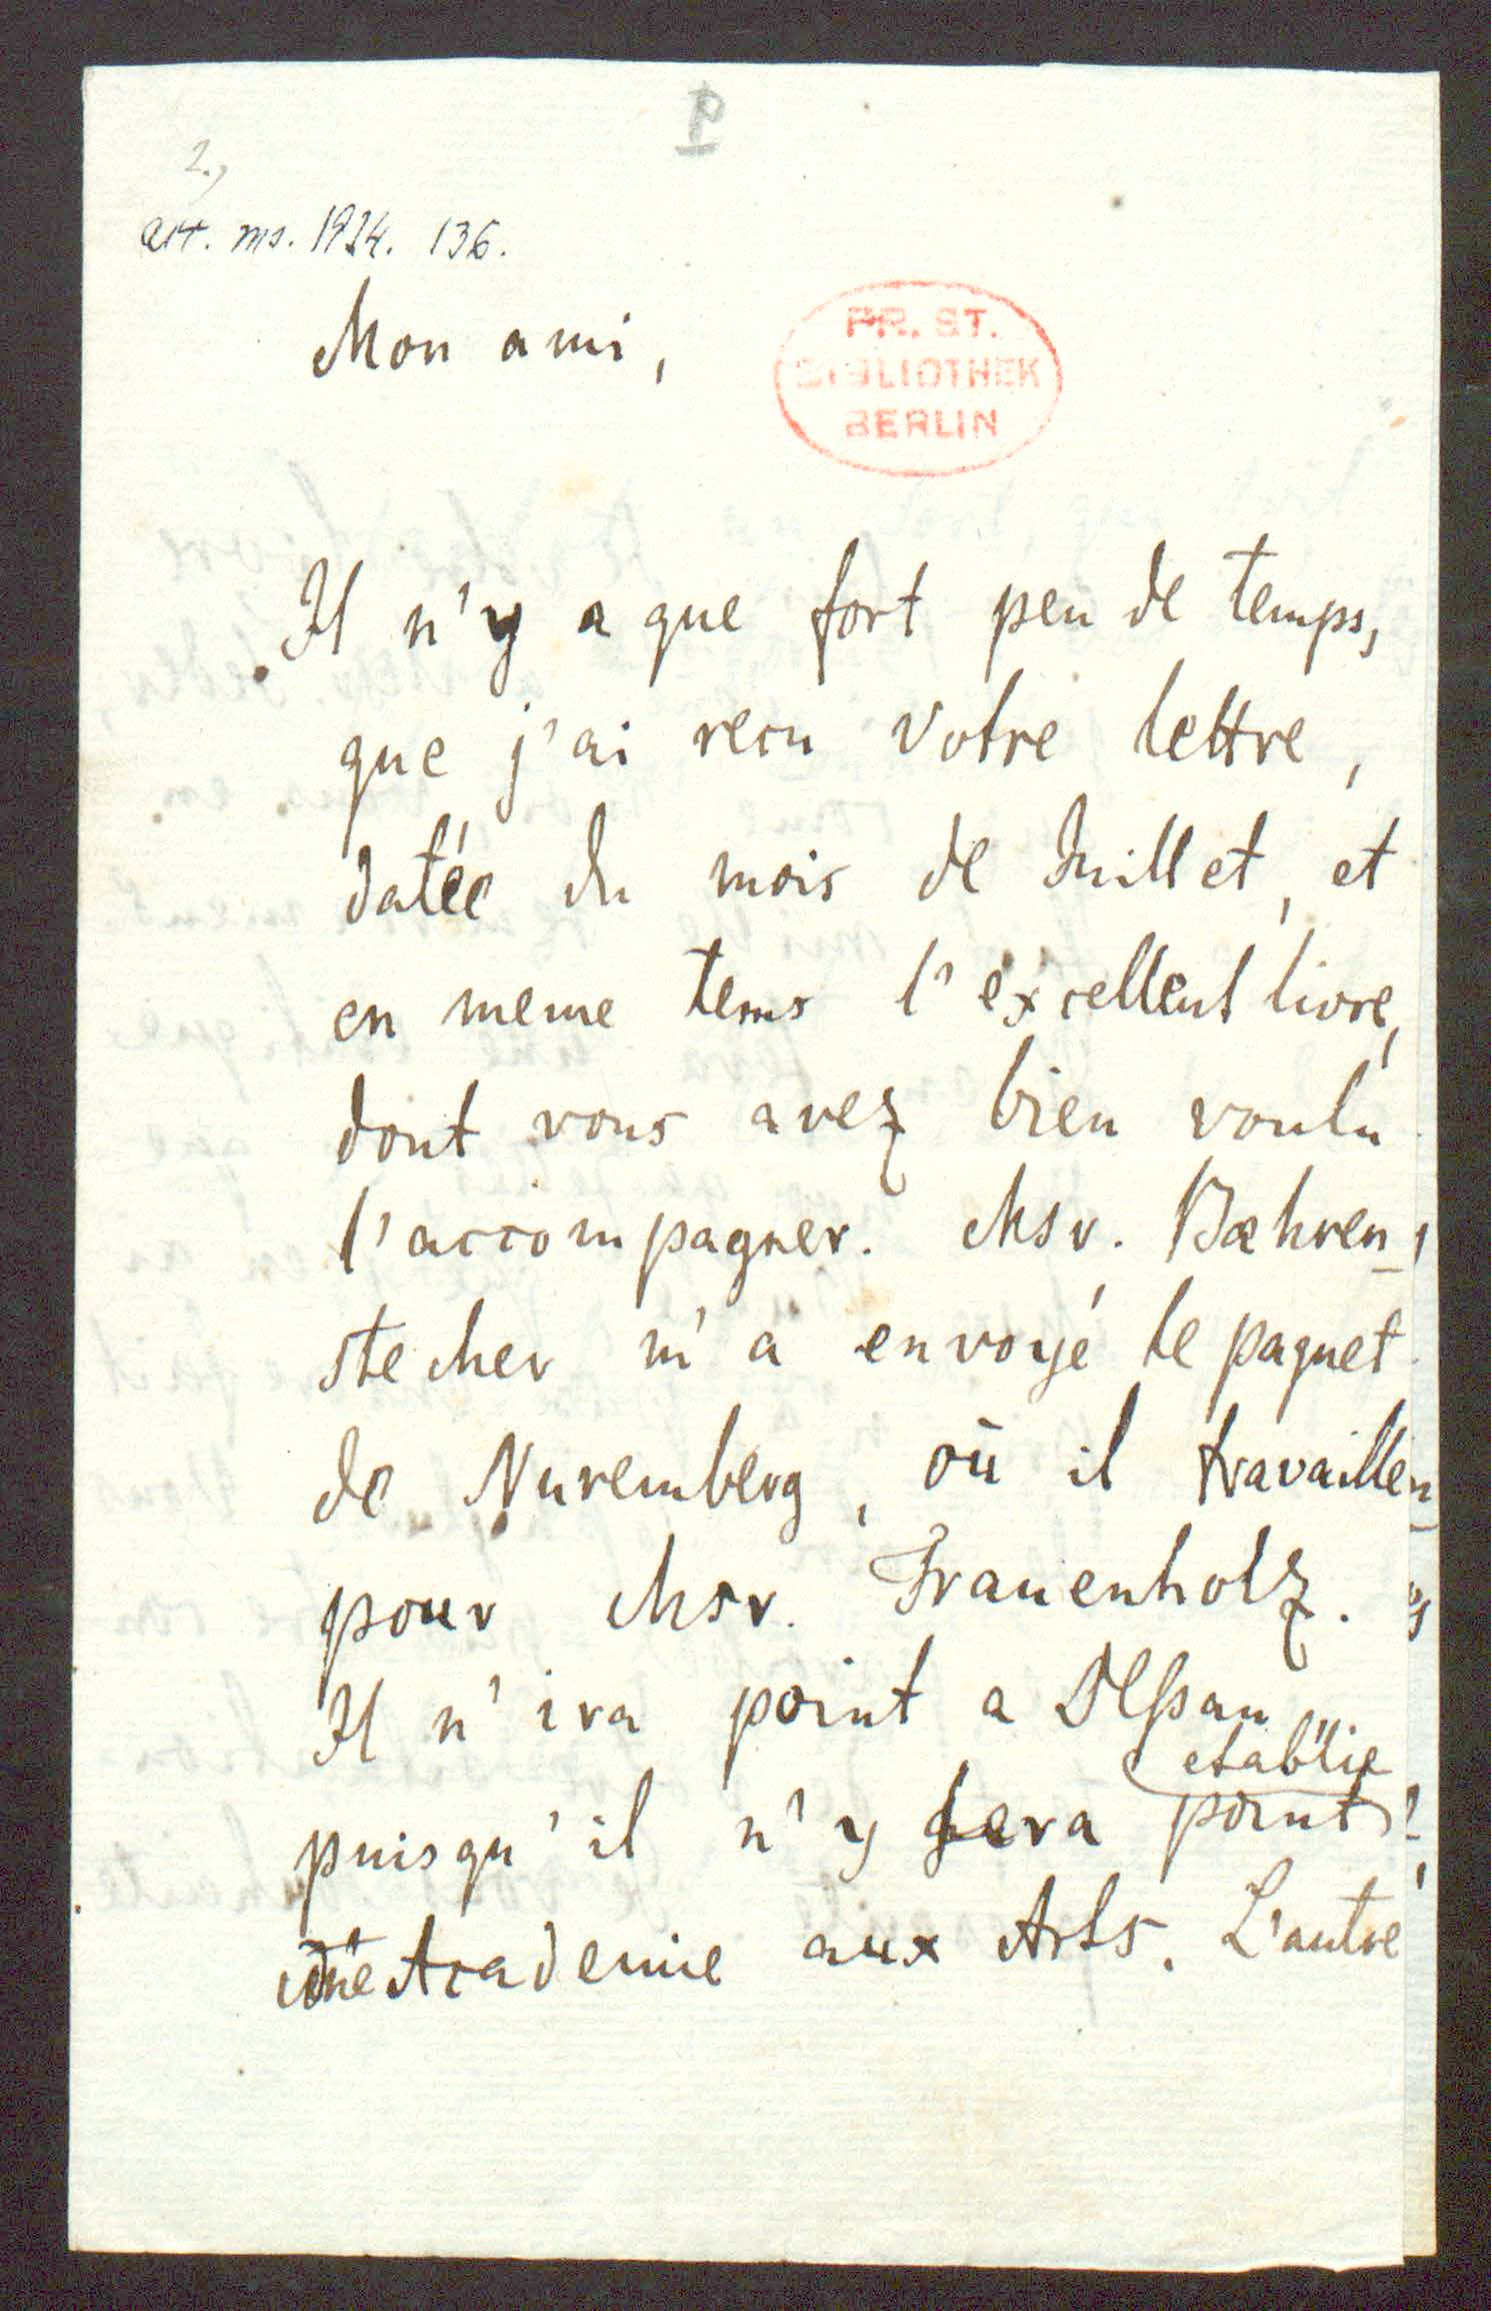 2.)
acc. ms. 1924. 136.
Mon ami,
PR. ST.
BIBLIOTHEK
BERLIN
Il n'y a que fort peu de temps,
que j'ai recu votre lettre,
datée du mois de Juillet, et
en meme tems l'excellent livre,
dont vous avez bien voulu
l'accompagner. Msr. Bæhren-
stecher m'a envoyé le paquet
de Nuremberg, où il travaille
pour Msr. Frauenholz.
Il n'ira point a Deßau
etablie
puisqu'il n'y sera point
une Academie aux Arts. L'autre